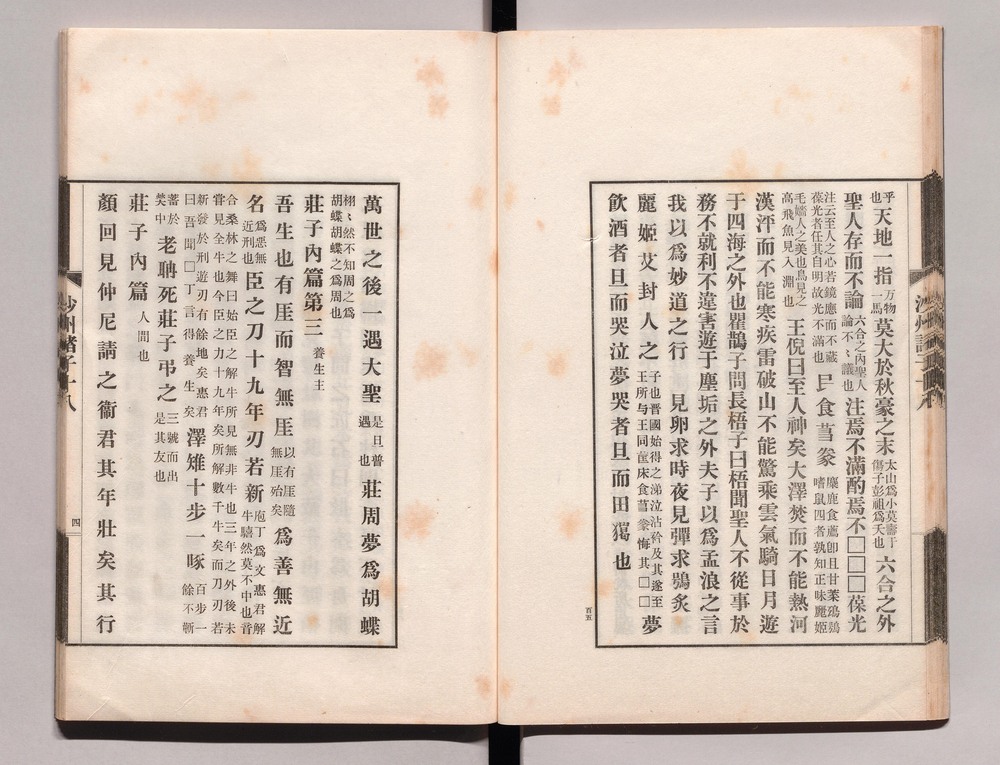 乎也天地一指万物一馬莫大於秋豪之末太山爲小莫壽于傷子彭祖爲夭也六合之外
聖人存而不論六合之內聖人論不〻議也注焉不滿酌焉不□□□葆光
注云至人之心若鏡應而不藏葆光者任其自明故光不滿也民食芻豢麋鹿食薦卽且甘菜鴉鵄嗜鼠四者孰知正味麗姬
毛嬙人之美也鳥見之高飛魚見入淵也王倪曰至人神矣大澤焚而不能熱河
漢沍而不能寒疾雷破山不能驚乘雲氣騎日月遊
于四海之外也瞿鵲子問長梧子曰梧聞聖人不從事於
務不就利不違害遊于塵垢之外夫子以爲孟浪之言
我以爲妙道之行　見卵求時夜見彈求鴞炙
麗姬艾封人之子也晉國始得之涕泣沾衿及其遂至王所与王同筐床食芻豢悔其□□夢
飮酒者旦而哭泣夢哭者旦而田獦也
百五
萬世之後一遇大聖是旦暮遇也莊周夢爲胡蝶
栩〻然不知周之爲胡蝶胡蝶之爲周也
莊子內篇第三養生主
吾生也有厓而智無厓以有厓隨無厓殆矣爲善無近
名爲惡無近刑也臣之刀十九年刃若新庖丁爲文惠君解牛騞然莫不中也音
合桑林之舞曰始臣之解牛所見無非牛也三年之外後未嘗見全牛也今臣之刀十九年矣所解數千牛矣而刀刃若
新發於刑遊刃有餘地矣惠君曰吾聞□丁言得養生矣澤雉十步一啄百步一餘不蘄
蓄於笑中老聃死莊子弔之三號而出是其友也
莊子內篇人間也
顏回見仲尼請之衞君其年壯矣其行
四